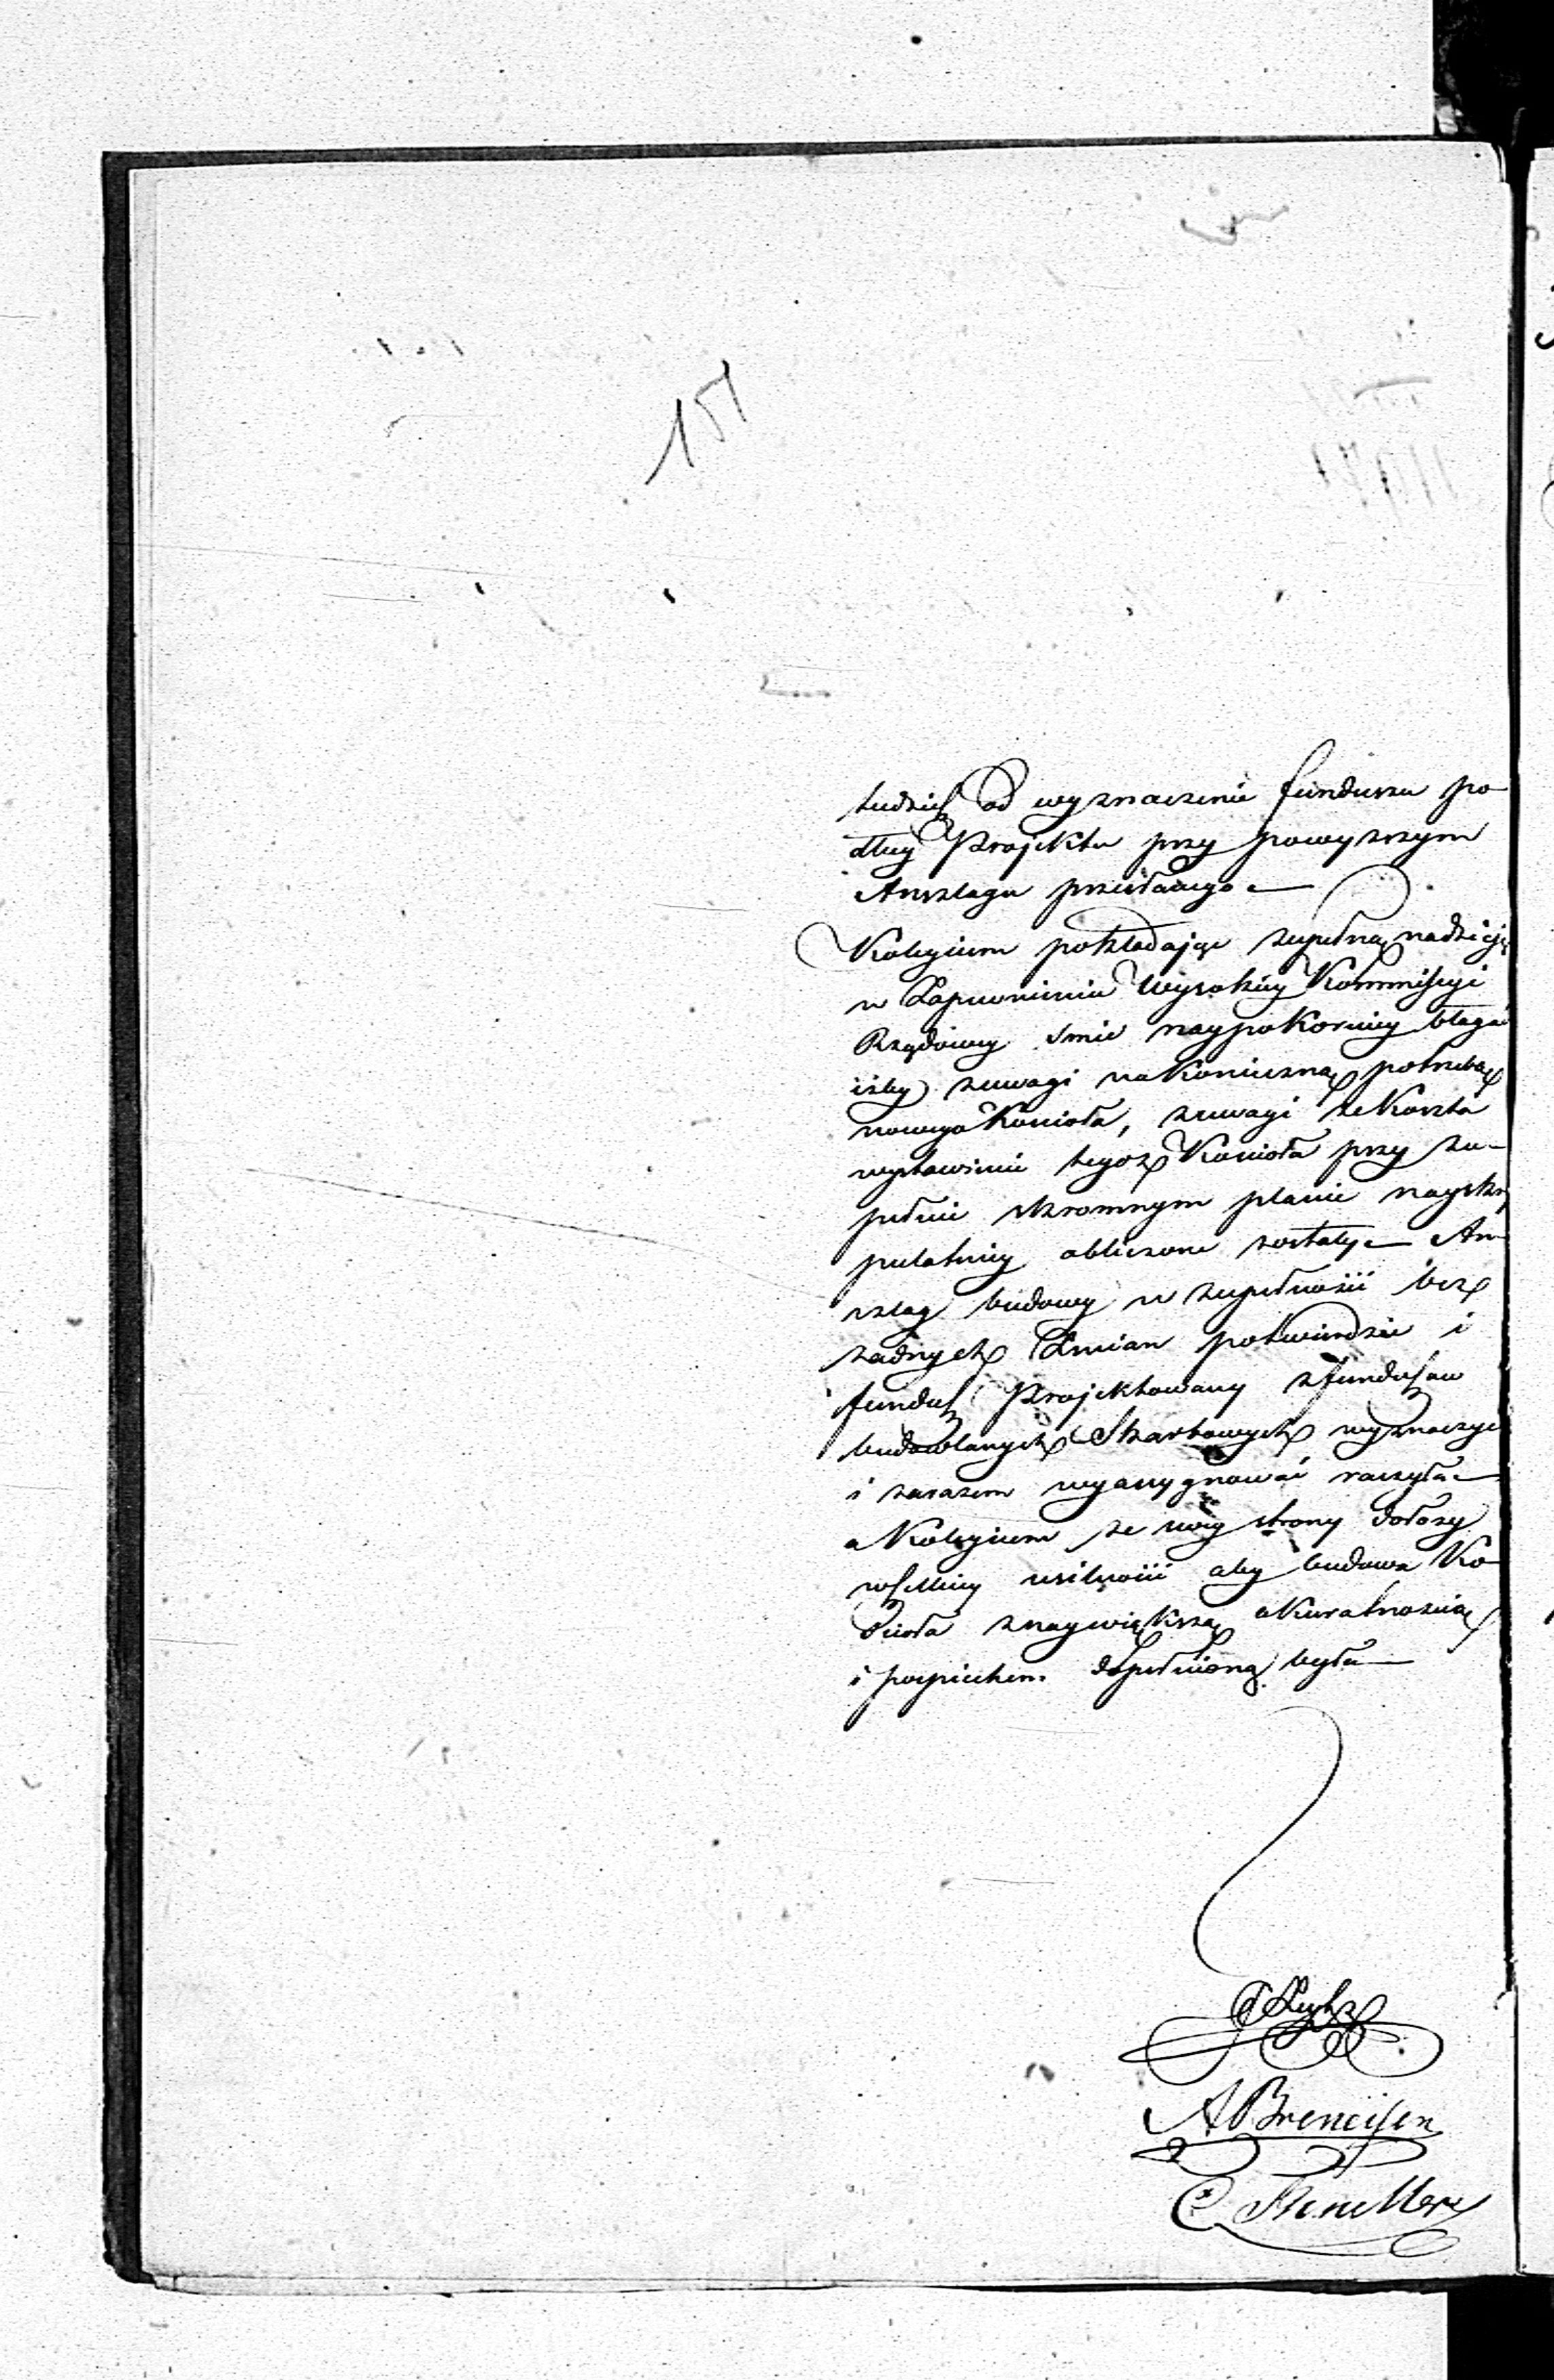 151
tudzież od wyznaczenia funduszu po
dług Projektu przy powyższym
Anszlagu przesłanego
Kolegium pokładając zupełną nadzieję
w Zapewnieniu Wysokiey Kommissyi
Rządowey smie naypokorniey błagać
iżby z uwagi na konieczną potrzebę
nowego Kościoła, z uwagi że koszta
wystawienia tegoż Kościoła przy zu-
pełnie skromnym planie nayskru
pulatniey obliczone zostały An-
szlag budowy w zupełności bez
żadnych Zmian potwierdzić i
fundusz Projektowany z funduszów
budowlanych Skarbowych wyznaczyć
i zarazem wyassygnować raczyła
a Kolegium ze swey strony dołoży
wszelkiey usilności aby budowa Ko-
ścioła z naywiększą akuratnością
i pospiechem dopełnioną była
A Breneisen